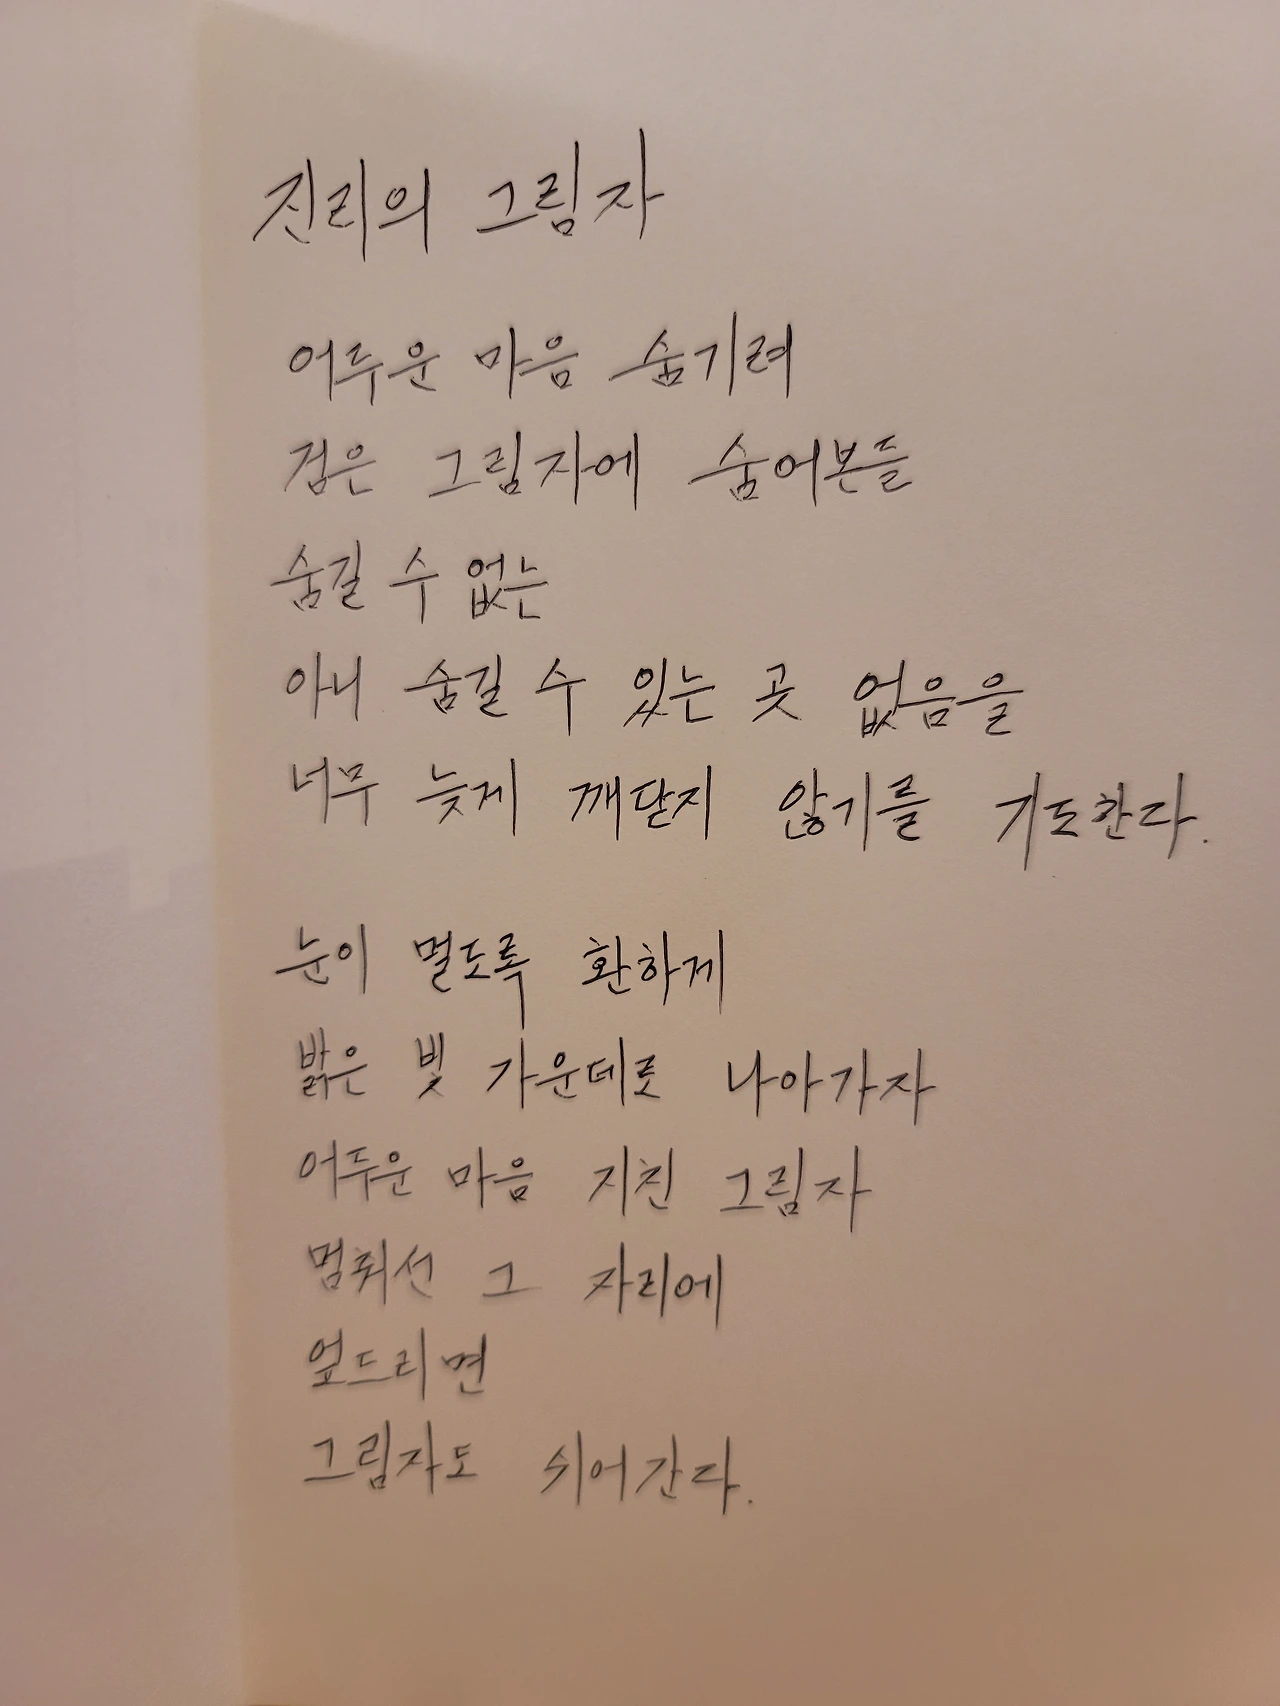 진리의 그림자
어두운 마음 숨기려
검은 그림자에 숨어본들
숨길 수 없는
아니 숨길 수 있는 곳 없음을
너무 늦게 깨닫지 않기를 기도한다.
눈이 멀도록 환하게
밝은 빛 가운데로 나아가자
어두운 마음 지친 그림자
멈춰선 그 자리에
엎드리면
그림자도 쉬어간다.